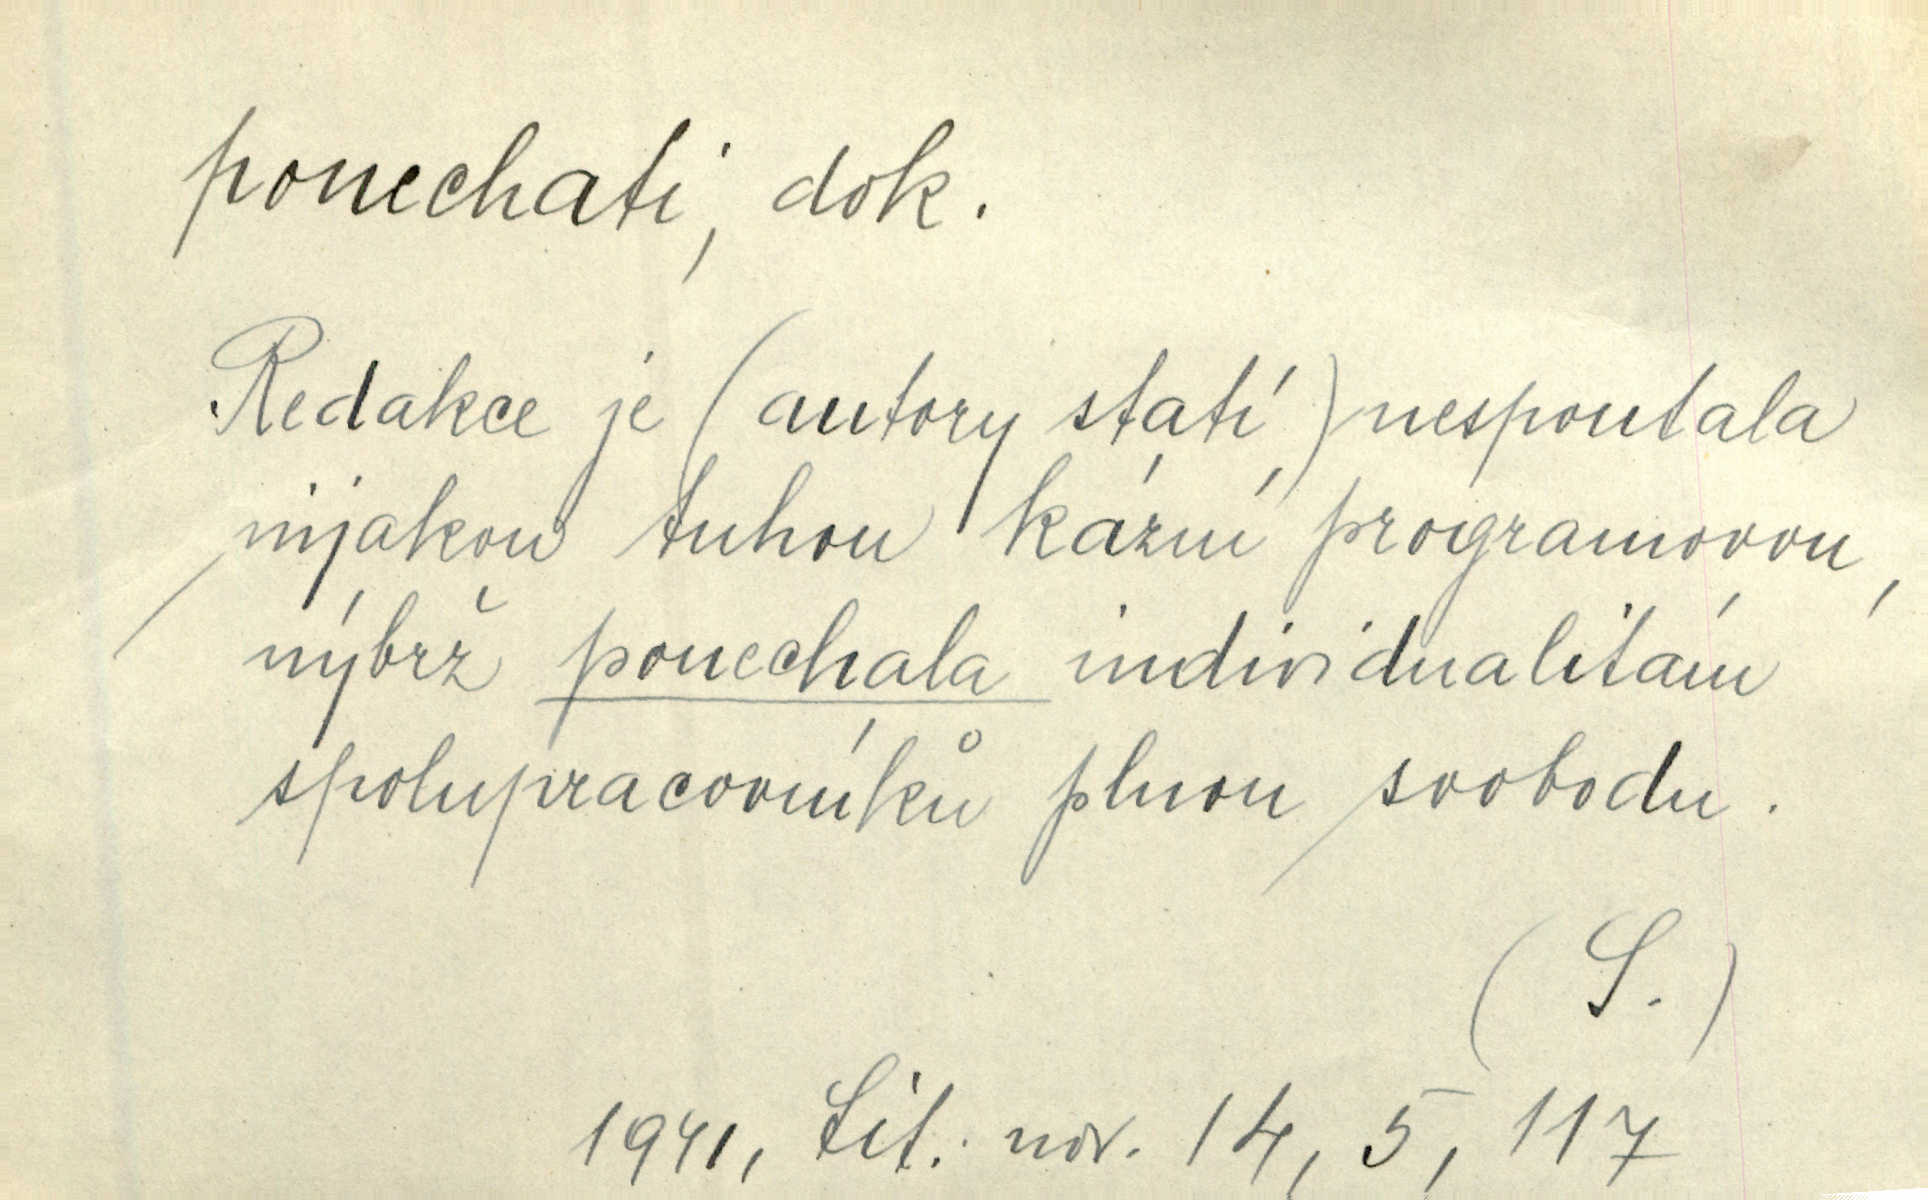 ponechati, dok.
Redakce je (autory statí) nespoutala
nijakou tuhou kázní programovou,
nýbrž ponechala individualitám
spolupracovníků plnou svobodu.
(S.)
1941, Lit. nov. 14, 5, 117